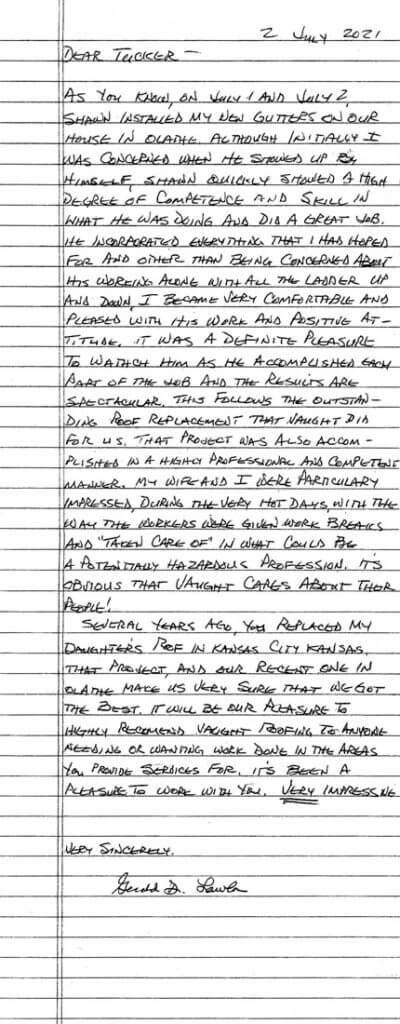 2 July 2021
DEAR TUCKER —
AS YOU KNOW, ON JULY 1 AND JULY 2,
SHAWN INSTALLED MY NEW GUTTERS ON OUR
HOUSE IN OLATHE. ALTHOUGH INITIALLY I
WAS CONCERNED WHEN HE SHOWED UP BY
HIMSELF, SHAWN QUICKLY SHOWED A HIGH
DEGREE OF COMPETENCE AND SKILL IN
WHAT HE WAS DOING AND DID A GREAT JOB.
HE INCORPORATED EVERYTHING THAT I HAD HOPED
FOR AND OTHER THAN BEING CONCERNED ABOUT
HIS WORKING ALONE WITH ALL THE LADDER UP
AND DOWN, I BECAME VERY COMFORTABLE AND
PLEASED WITH HIS WORK AND POSITIVE AT-
TITUDE. IT WAS A DEFINITE PLEASURE
TO WATHCH HIM AS HE ACCOMPLISHED EACH
PART OF THE JOB AND THE RESULTS ARE
SPECTACULAR. THIS FOLLOWS THE OUTSTAN-
DING ROOF REPLACEMENT THAT VAUGHT DID
FOR US. THAT PROJECT WAS ALSO ACCOM-
PLISHED IN A HIGHLY PROFESSIONAL AND COMPETENT
MANNER. MY WIFE AND I WERE PARTICULARY
IMPRESSED, DURING THE VERY HOT DAYS, WITH THE
WAY THE WORKERS WERE GIVEN WORK BREAKS
AND "TAKEN CARE OF" IN WHAT COULD BE
A POTENTIALLY HAZARDOUS PROFESSION. IT'S
OBVIOUS THAT VAUGHT CARES ABOUT THER
PEOPLE!
SEVERAL YEARS AGO, YOU REPLACED MY
DAUGHTER'S ROOF IN KANSAS CITY KANSAS.
THAT PROJECT, AND OUR RECENT ONE IN
OLATHE MAKE US VERY SURE THAT WE GOT
THE BEST. IT WILL BE OUR PLEASURE TO
HIGHLY RECOMEND VAUGHT ROOFING TO ANYONE
NEEDING OR WANTING WORK DONE IN THE AREAS
YOU PROVIDE SERVICES FOR. IT'S BEEN A
PLEASURE TO WORK WITH YOU. VERY IMPRESSIVE
VERY SINCERELY.
Gerald D. Lawler